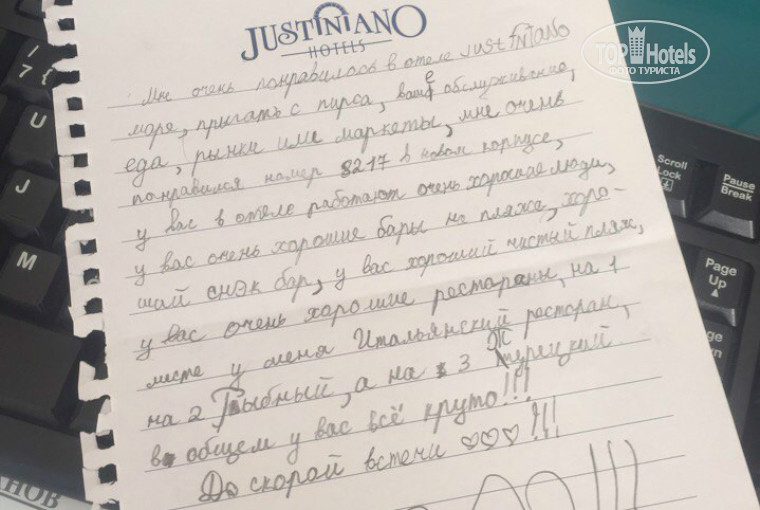 JUSTINIANO
HOTELS
TOP Hotels
ФОТО ТУРИСТА
Мне очень понравилось в отеле JUSTINIANO
море, прыгать с пирса, ваше обслуживание,
еда, рынки или маркеты, мне очень
понравился номер 8217 в новом корпусе,
у вас в отеле работают очень хорошие люди,
у вас очень хорошие бары на пляже, хоро-
ший снэк бар, у вас хороший чистый пляж,
у вас очень хорошие рестораны, на 1
месте у меня Итальянский ресторан,
на 2 Рыбный, а на 3
в общем у вас всё круто!!!
До скорой встечи ♡♡♡!!!
/
7 {
U
J
M
Scroll
Lock
Pause
Break
Page
Up
НОВ